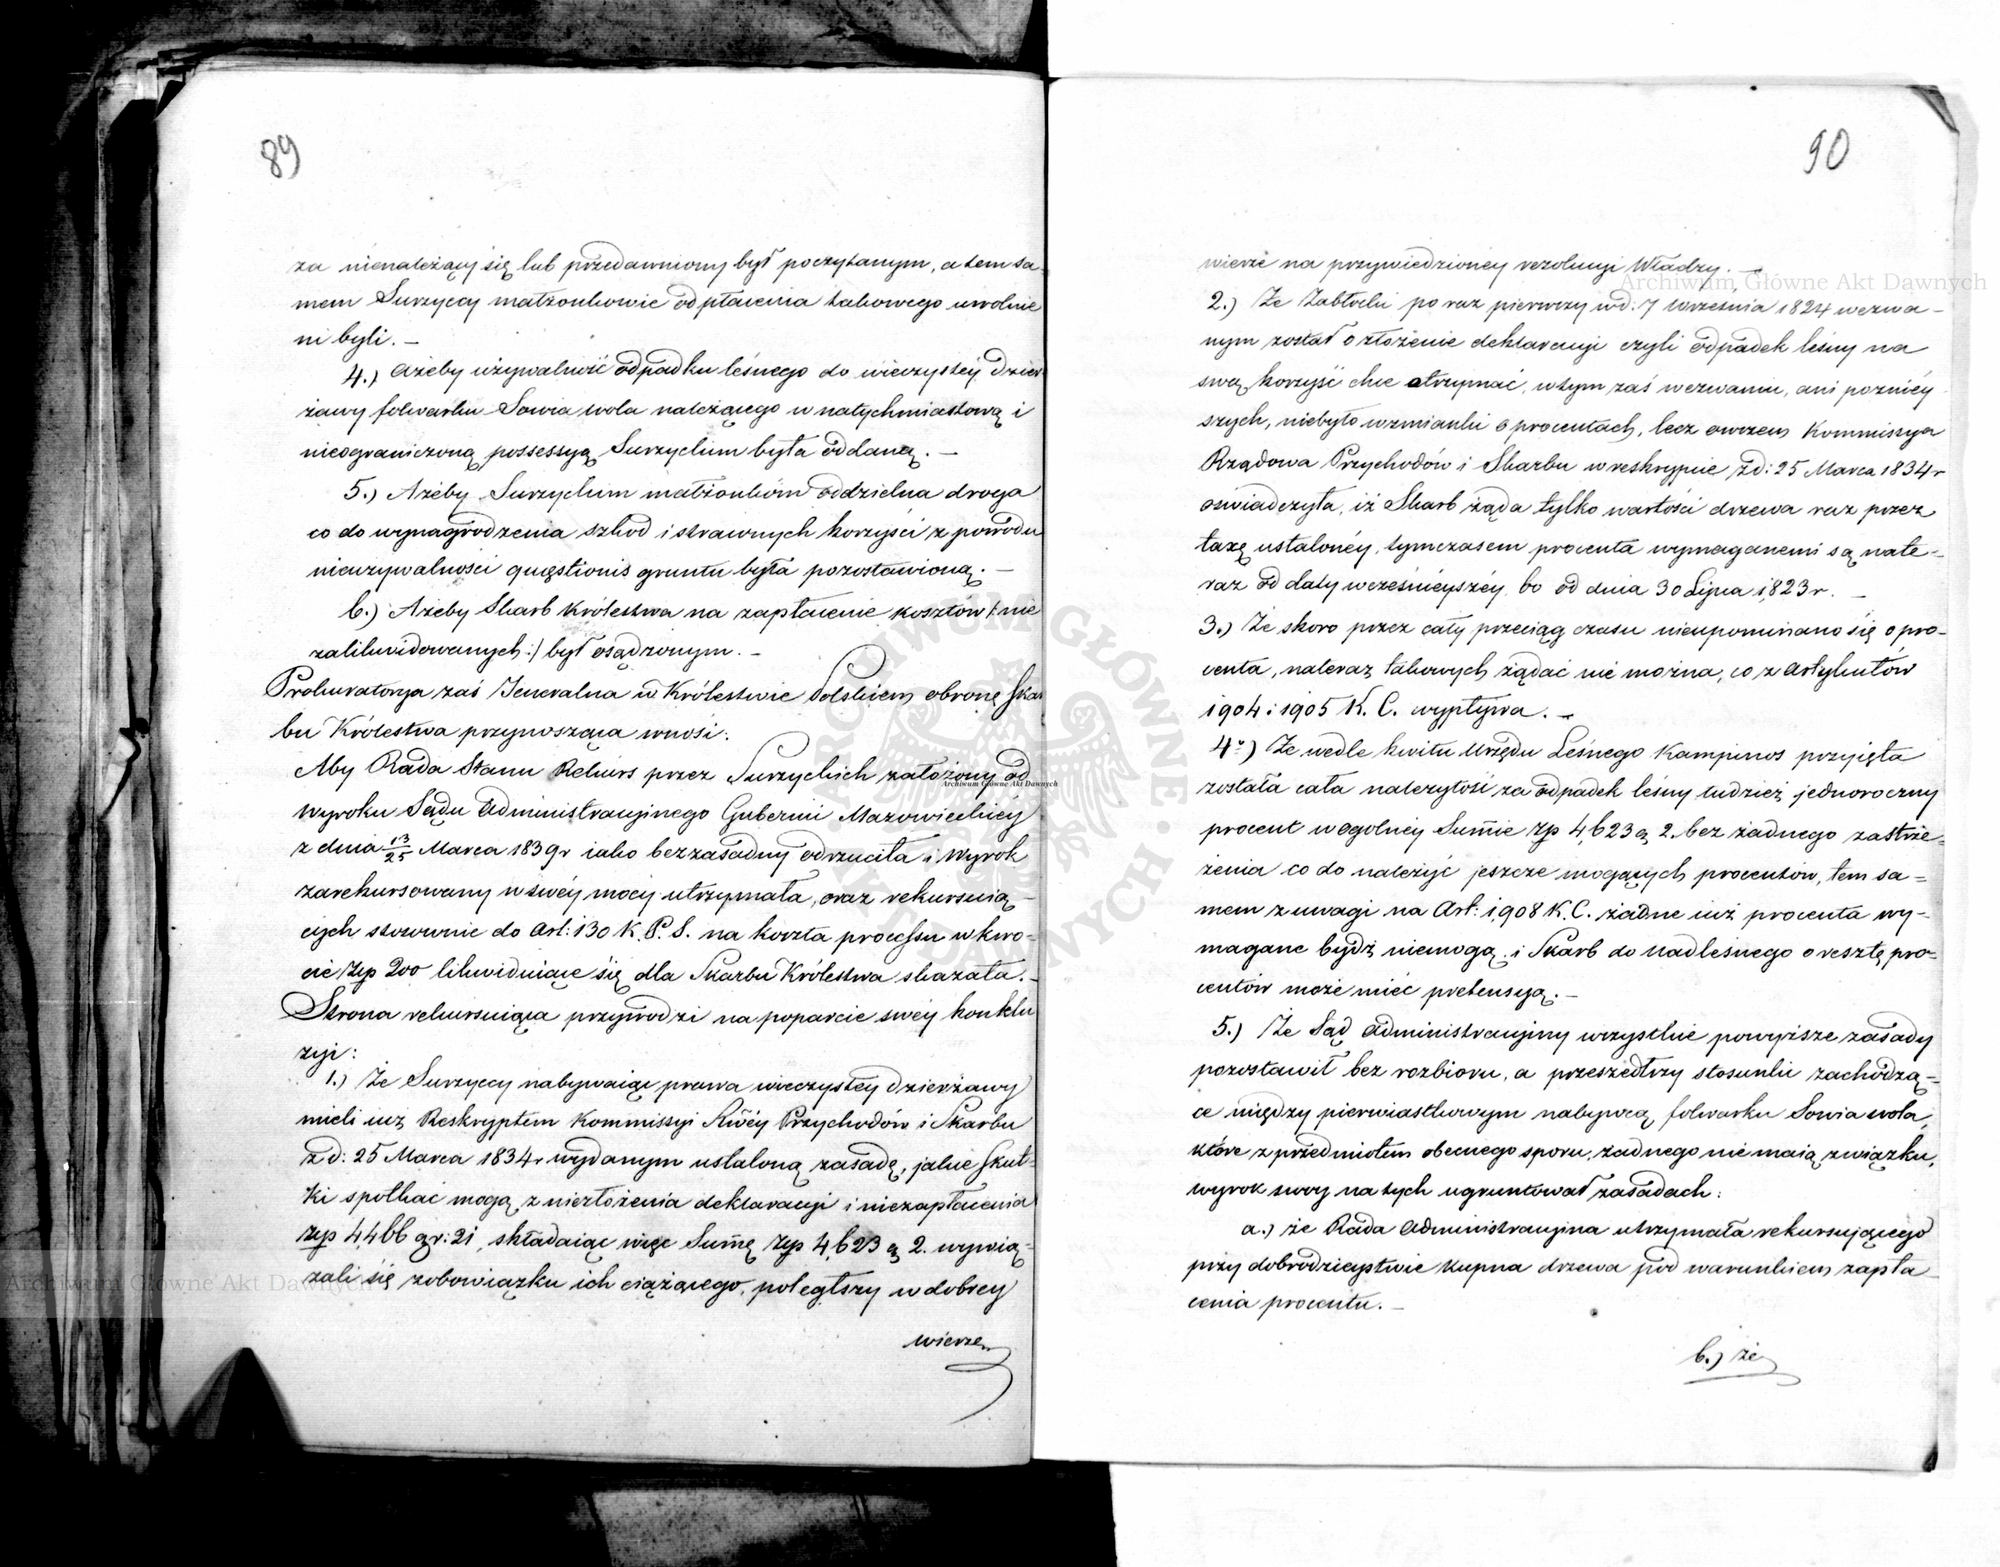 89
za nienależący się lub przedawniony był poczytanym, a tem sa-
mem Surzyccy małżonkowie od płacenia takowego uwolnie
ni byli. –
4.) Ażeby używalność odpadku leśnego do wieczystéy dzier
żawy folwarku Sowia wola należącego w natychmiastową i
nieograniczoną possessyą Surzyckim była oddaną. –
5.) Ażeby Surzyckim małżonkóm oddzielna droga
co do wynagrodzenia szkod i strawnych korzyści z powodu
nieużywalności quęstionis gruntu była pozostawioną. –
6.) Ażeby Skarb Królestwa na zapłacenie kosztów /: nie
zalikwidowanych :/ był osądzonym. –
Prokuratorya zaś Jeneralna w Królestwie Polskiem obronę Skar
bu Królestwa przynosząca wnosi:
Aby Rada Stanu Rekurs przez Surzyckich założony od
wyroku Sądu Administracyjnego Gubernii Mazowieckiéy
z dnia 13/25 Marca 1839 r iako bezzasadny odrzuciła i Wyrok
zarekursowany w swéy mocy utrzymała, oraz rekursuią-
cych stosownie do Art: 130 K. P. S. na koszta processu w kwo-
cie złp 200 likwiduiące się dla Skarbu Królestwa skazała. –
Strona rekursuiąca przywodzi na poparcie swéy konklu
zyi:
1.) Że Surzyccy nabywaiąc prawa wieczystéy dzierżawy
mieli iuż Reskryptem Kommissyi Rwéy Przychodów i Skarbu
z d: 25 Marca 1834 r wydanym ustaloną zasadę, jakie skut-
ki spotkać mogą z niezłożenia deklaracyi i niezapłacenia
złp 4,466 gr: 21, składaiąc więc Summę złp 4,623 g 2. wywią-
zali się zobowiązku ich ciążącego, poległszy w dobrey
wierze
90
wierze na przywiedzioney rezolucyi Władzy. –
2.) Że Zabłocki po raz pierwszy w d: 7 Września 1824 wezwa-
nym został o złożenie deklaracyi czyli odpadek leśny na
swą korzyść chce otrzymać, w tym zaś wezwaniu, ani poźniéy
szych, niebyło wzmianki o procentach, lecz owszem Kommissya
Rządowa Przychodów i Skarbu w reskrypcie z d: 25 Marca 1834 r
oświadczyła, iż Skarb żąda tylko wartości drzewa raz przez
taxę ustalonéy, tymczasem procenta wymaganemi są nate-
raz od daty wcześniéyszéy bo od dnia 30 Lipca 1823 r. –
3.) Że skoro przez cały przeciąg czasu nieupominano się o pro-
centa, nateraz takowych żądać nie można, co z Artykułów
1904 i 1905 K. C. wypływa. –
4o) Że wedle kwitu Urzędu Leśnego Kampinos przyjęta
została cała należytość za odpadek leśny tudzież jednoroczny
procent w ogolnéy Summie złp 4,623 g 2. bez żadnego zastrze-
żenia co do należyć jeszcze mogących procentów, tem sa-
mem z uwagi na Art: 1,908 K. C. żadne iuż procenta wy-
magane bydź niemogą, i Skarb do Nadleśnego o resztę pro-
centów może mieć pretensyą. –
5.) Że Sąd Administracyjny wszystkie powyższe zasady
pozostawił bez rozbioru, a przeszedłszy stosunki zachodzą-
ce między pierwiastkowym nabywcą folwarku Sowia wola,
które z przedmiotem obecnego sporu, żadnego nie maią związku,
wyrok swoy na tych ugruntował zasadach:
a.) że Rada Administracyina utrzymała rekursującego
przy dobrodzieystwie kupna drzewa pod warunkiem zapła
cenia procentu. –
b.) że
Archiwum Główne Akt Dawnych
Archiwum Główne Akt Dawnych
Archiwum Główne Akt Dawnych
ARCHIWUM GŁÓWNE AKT DAWNYCH